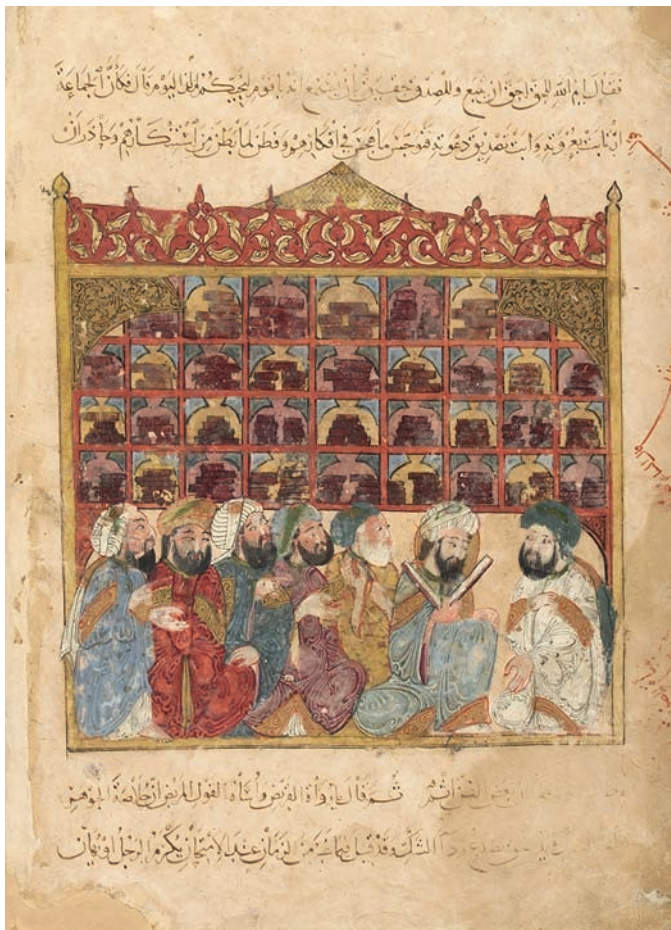 فقال ايم الله للحق احق ان يتبع وللصدق حقيق بان يستمع انه يا قوم لنجيكم مذ اليوم قال فكأن الجماعة
ارتابت بعزوته وابت تصديق دعوته فتوجس ما هجس في افكارهم وفطن لما بطن من استنكارهم وحاذر ان
ان بعض الظن اثم ثم قال يا رواة القريض واساة القول المريض ان خلاصة الجوهر
الحق تصدع رداء الشك وقد قيل فيما غبر من الزمان عند الامتحان يكرم الرجل او يهان